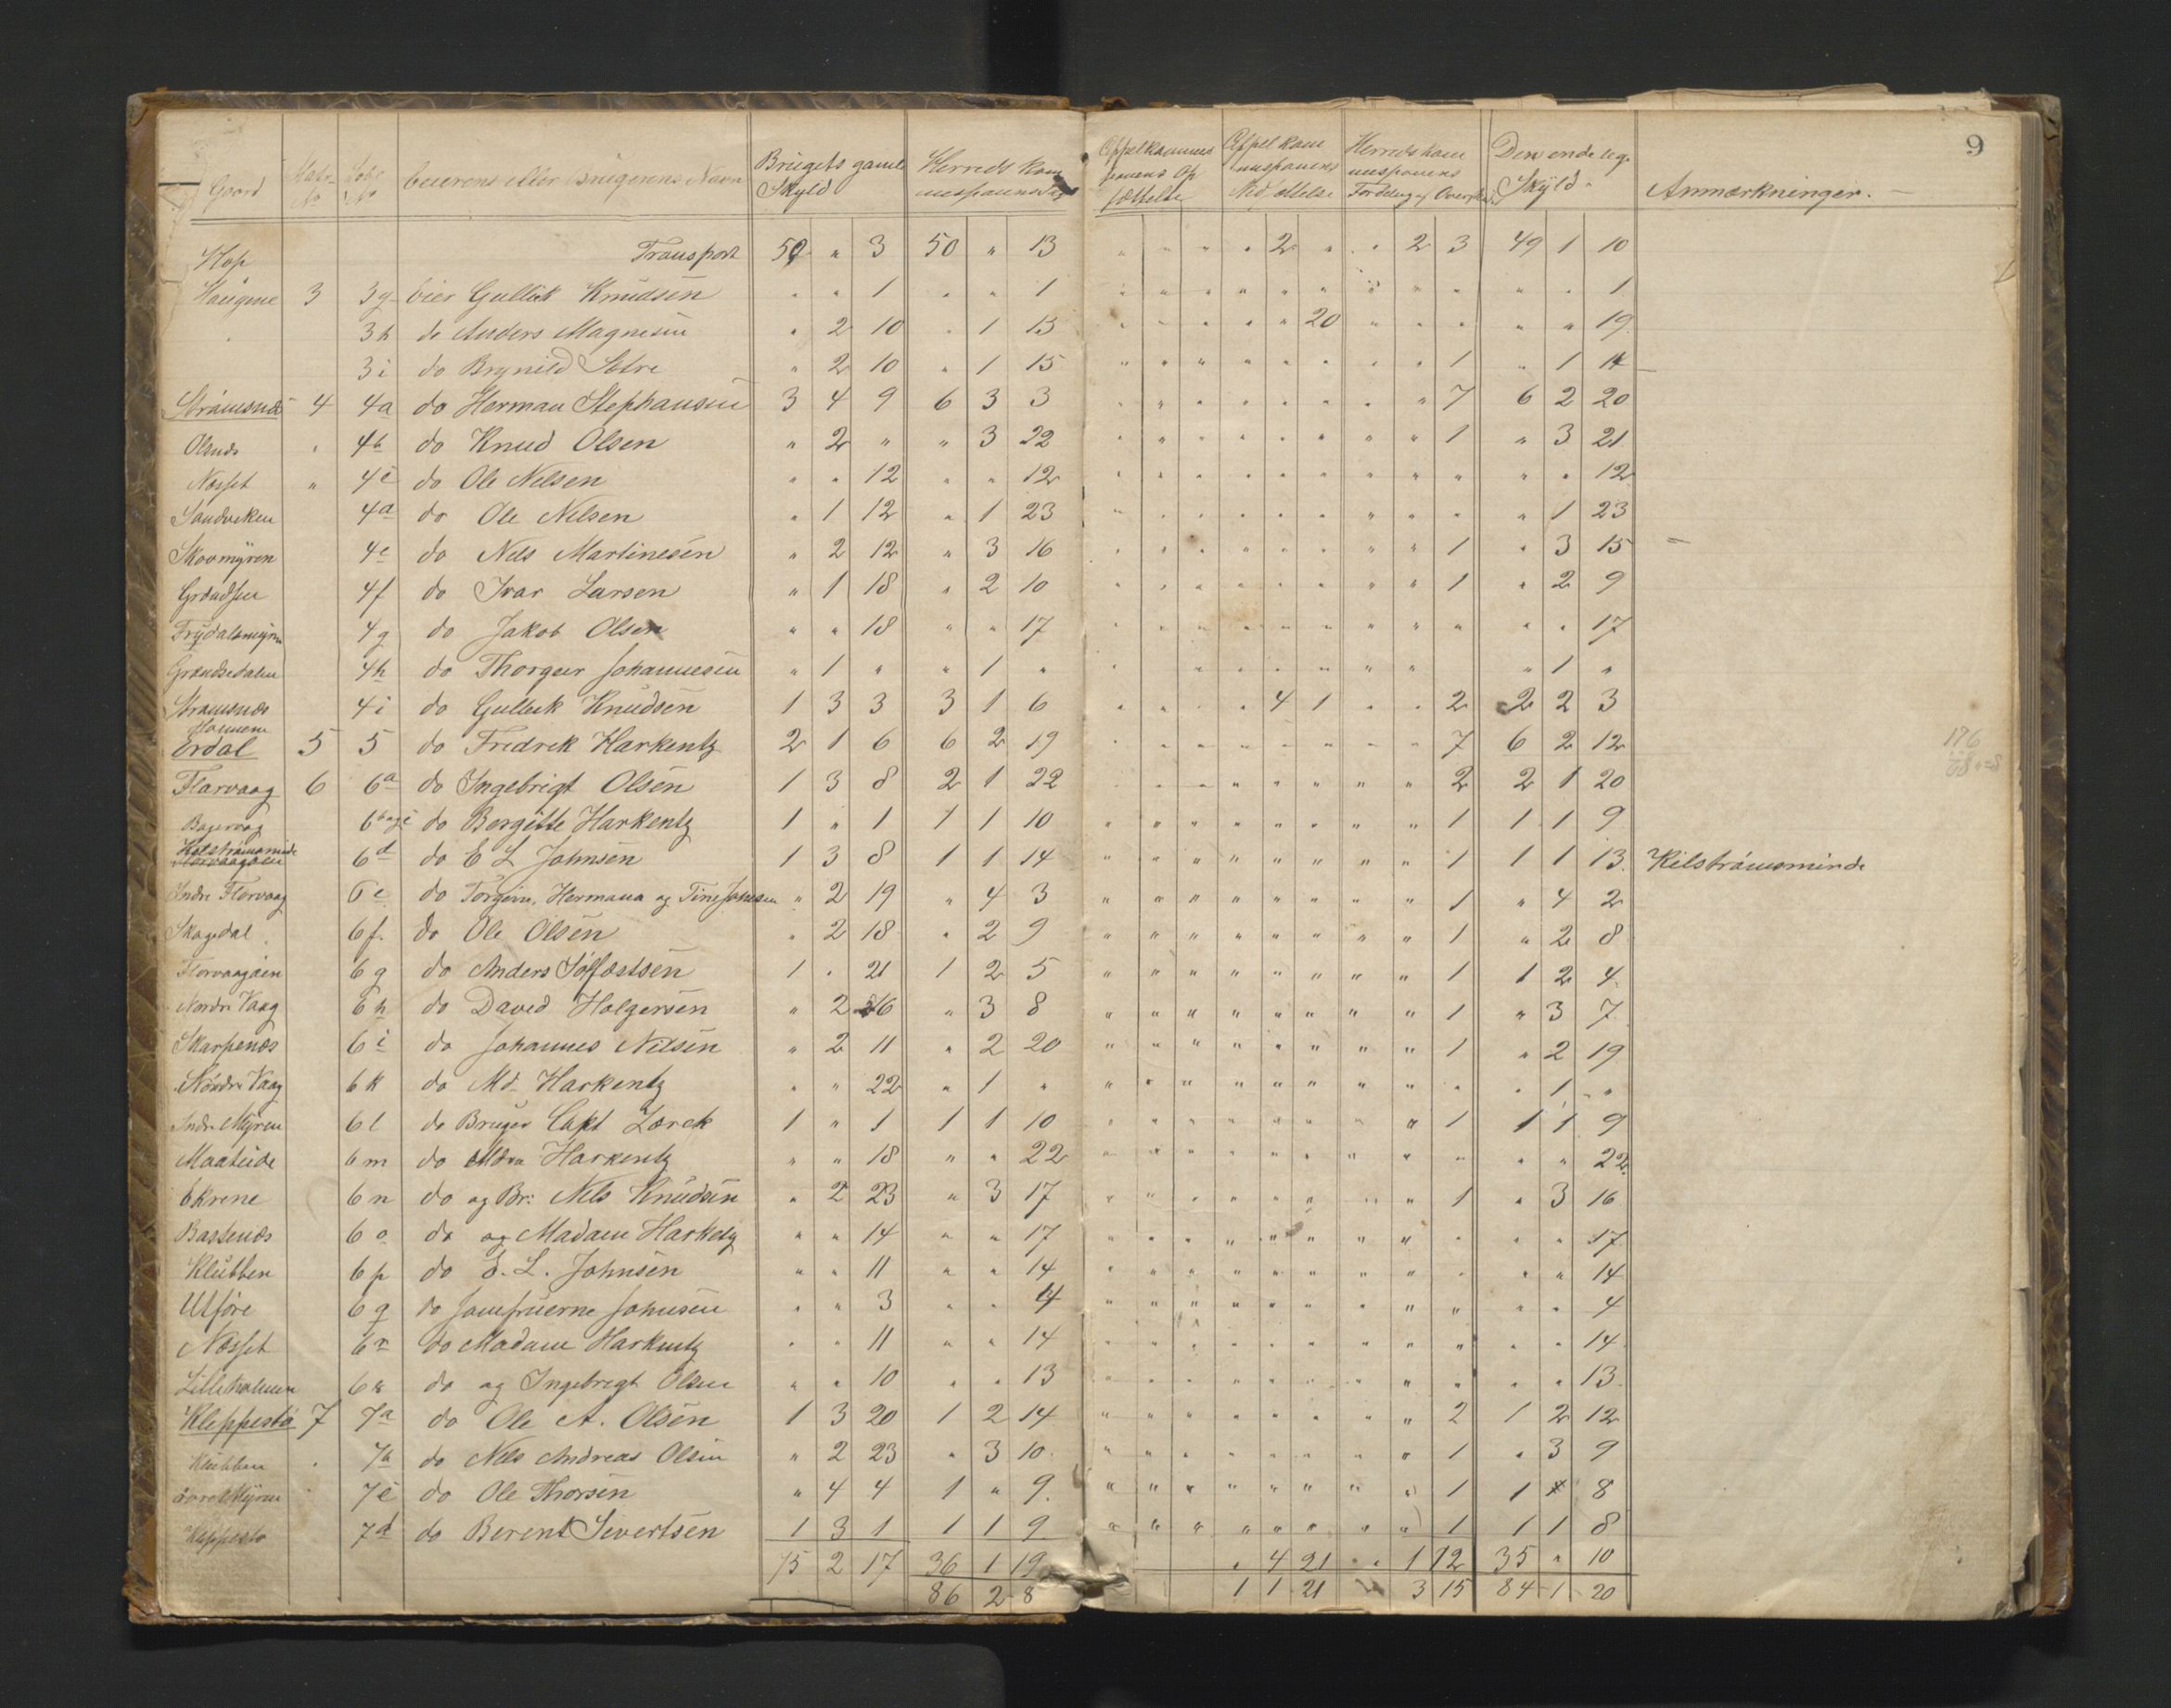 9
Gaard Matr No Løbe No Eierens eller Brugerens Navn Brugets gamle Skyld Herreds kom misionens Appelkommis Appel kom Herreds kom Den endelige Skyld Anmærkninger.
Hop Transport 50 " 3 50 " 13 " " " " 2 " " 2 3 49 1 10
Haugene 3 3g Eier Gullik Knudsen " " 1 " " 1 " " " " " " " " " " " 1
3h do Anders Magnesen " 2 10 " 1 15 " " " " " 20 " " " " " 19
3i do Brynild Sætre " 2 10 " 1 15 " " " " " " " " 1 " 1 14
Strømsnæs 4 4a do Herman Stephansen 3 4 9 6 3 3 " " " " " " " " 7 6 2 20
Olsnæs " 4b do Knud Olsen " 2 " " 3 22 " " " " " " " " 1 " 3 21
Næsset " 4c do Ole Nilsen " " 12 " " 12 " " " " " " " " " " " 12
Sandviken 4d do Ole Nilsen " 1 12 " 1 23 " " " " " " " " " " 1 23
Skovmyren 4e do Nils Martinesen " 2 12 " 3 16 " " " " " " " " 1 " 3 15
Grændsen 4f do Ivar Larsen " 1 18 " 2 10 " " " " " " " " 1 " 2 9
Frydalsmyren 4g do Jakob Olsen " " 18 " " 17 " " " " " " " " " " " 17
Grændsedalen 4h do Thorger Johannesen " 1 " " 1 " " " " " " " " " " 1 "
Strømsnæs Holmene 4i do Gullik Knudsen 1 3 3 3 1 6 " " " " 4 1 " " 2 2 2 3
Erdal 5 5 do Fredrik Harkentz 2 1 6 6 2 19 " " " " " " " " 7 6 2 12
Florvaag 6 6a do Ingebrigt Olsen 1 3 8 2 1 22 " " " " " " " " 2 2 1 20
Bagervag 6b og c do Bergitte Harkentz 1 " 1 1 1 10 " " " " " " " " 1 1 1 9
Kilstrømsminde Florvaagøen 6d do E L Johnsen 1 3 8 1 1 14 " " " " " " " " 1 1 1 13 Kilstrømsminde
Indre Florvaag 6e do Torgine, Hermana og Tine Johnsen " 2 19 " 4 3 " " " " " " " " 1 " 4 2
Skagedal 6f do Ole Olsen " 2 18 " 2 9 " " " " " " " " 1 " 2 8
Florvaagøen 6g do Anders Sølfæstsen 1 " 21 1 2 5 " " " " " " " " 1 1 2 4
Nordre Vaag 6h do David Holgersen " 2 16 " 3 8 " " " " " " " " 1 " 3 7
Skarpenæs 6i do Johannes Nilsen " 2 11 " 2 20 " " " " " " " " 1 " 2 19
Nordre Vaag 6k do Md. Harkentz " " 22 " 1 " " " " " " " " " " " 1 "
Indre Myren 6l do Bruger Capt Lorck 1 " 1 1 1 10 " " " " " " " " 1 1 1 9
Maateide 6m do Mdm Harkentz " " 18 " " 22 " " " " " " " " " " " 22
Ekrene 6n do og Br: Nils Knudsen " 2 23 " 3 17 " " " " " " " " 1 " 3 16
Bastenæs 6o do og Madam Harkentz " " 14 " " 17 " " " " " " " " " " " 17
Klubben 6p do E. L. Johnsen " " 11 " " 14 " " " " " " " " " " " 14
Utføre 6q do Jomfruerne Johnsen " " 3 " " 4 " " " " " " " " " " " 4
Næsset 6r do Madam Harkentz " " 11 " " 14 " " " " " " " " " " " 14
Lilleholmen 6s do og Ingebrigt Olsen " " 10 " " 13 " " " " " " " " " " " 13
Kleppestø 7 7a do Ole A. Olsen 1 3 20 1 2 14 " " " " " " " " 2 1 2 12
Klubben " 7b do Nils Andreas Olsen " 2 23 " 3 10 " " " " " " " " 1 " 3 9
øvre Myren " 7c do Ole Thorsen " 4 4 1 " 9 " " " " " " " " 1 1 " 8
Kleppestø 7d do Berent Sivertsen 1 3 1 1 1 9 " " " " " " " " 1 1 1 8
75 2 17 36 1 19 " 4 21 " 1 12 35 " 10
86 2 8 1 1 21 3 15 84 1 20
176